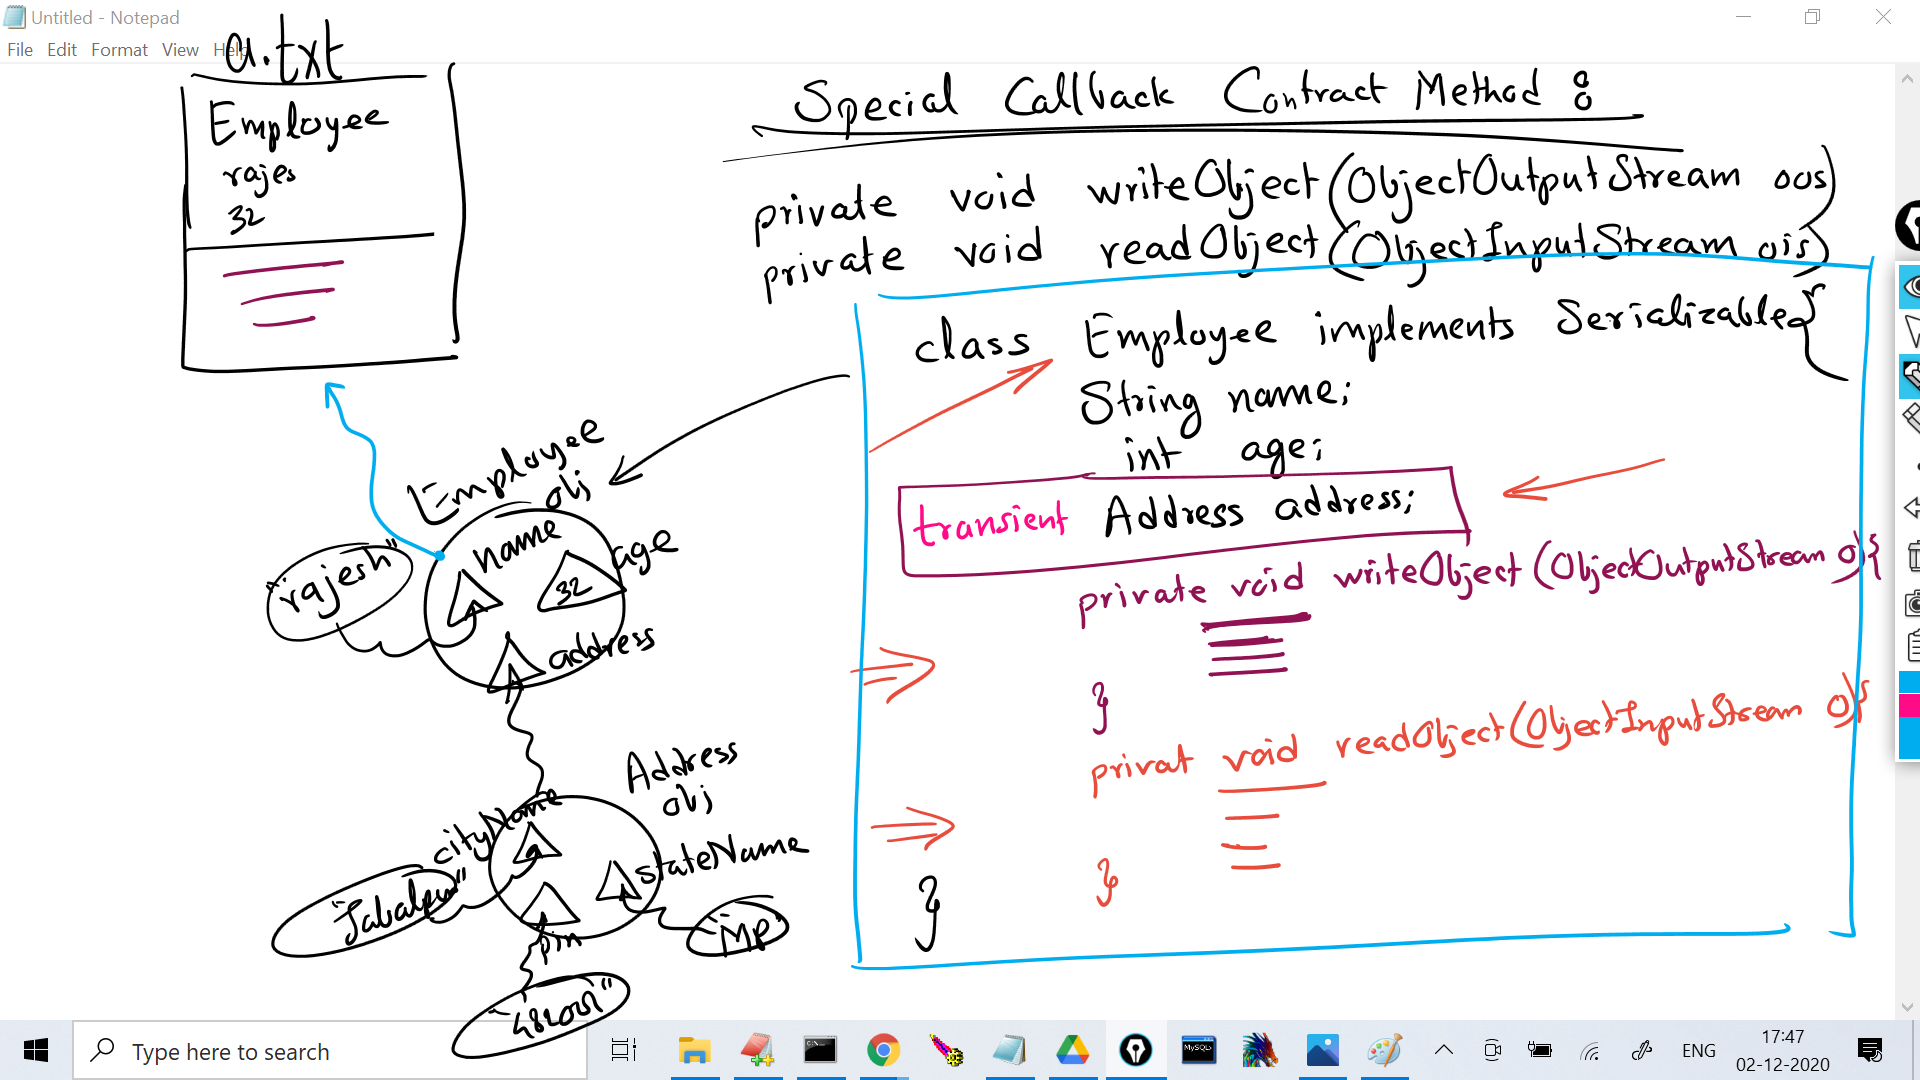 Untitled - Notepad
File Edit Format View Help
a.txt
Employee
rajes
32
Special Callback Contract Method :
private void writeObject(ObjectOutputStream oos)
private void readObject(ObjectInputStream ois)
class Employee implements Serializable{
String name;
int age;
transient Address address;
private void writeObject(ObjectOutputStream o){
}
privat void readObject(ObjectInputStream o){
}
}
Employee
obj
name
age
32
"rajesh"
address
Address
obj
cityName
stateName
"Jabalpur"
pin
"MP"
"482001"
Type here to search
MySQL
ENG
17:47
02-12-2020